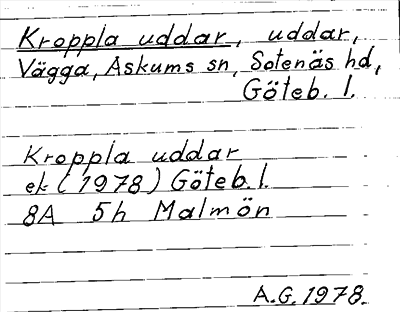 Kroppla uddar, uddar,
Vägga, Askums sn, Sotenäs hd,
Göteb. l.
Kroppla uddar
ek (1978) Göteb. l.
8A 5h Malmön
A.G. 1978.